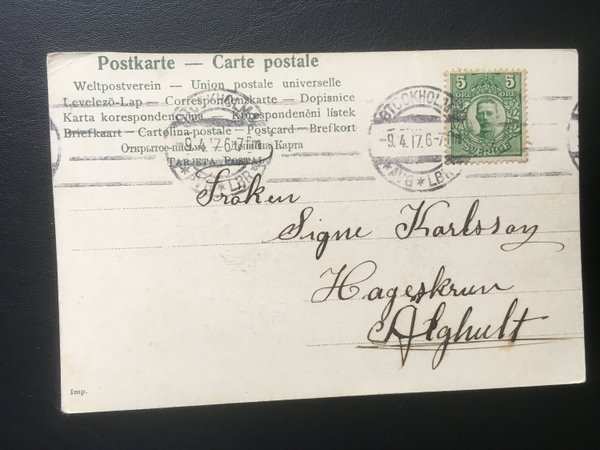 Postkarte — Carte postale
Weltpostverein — Union postale universelle
Levelező-Lap — Correspondenzkarte — Dopisnice
Karta korespondencyjna — Korespondenční lístek
Briefkaart — Cartolina postale — Postcard — Brefkort
Открытое письмо
Карта
TARJETA POSTAL
STOCKHOLM
9.4.17.6-7E
AVG * LBR
STOCKHOLM
9.4.17.6-7E
AVG * LBR
5 5
SVERIGE
Fröken
Signe Karlsson
Hageskrun
Älghult
Imp.